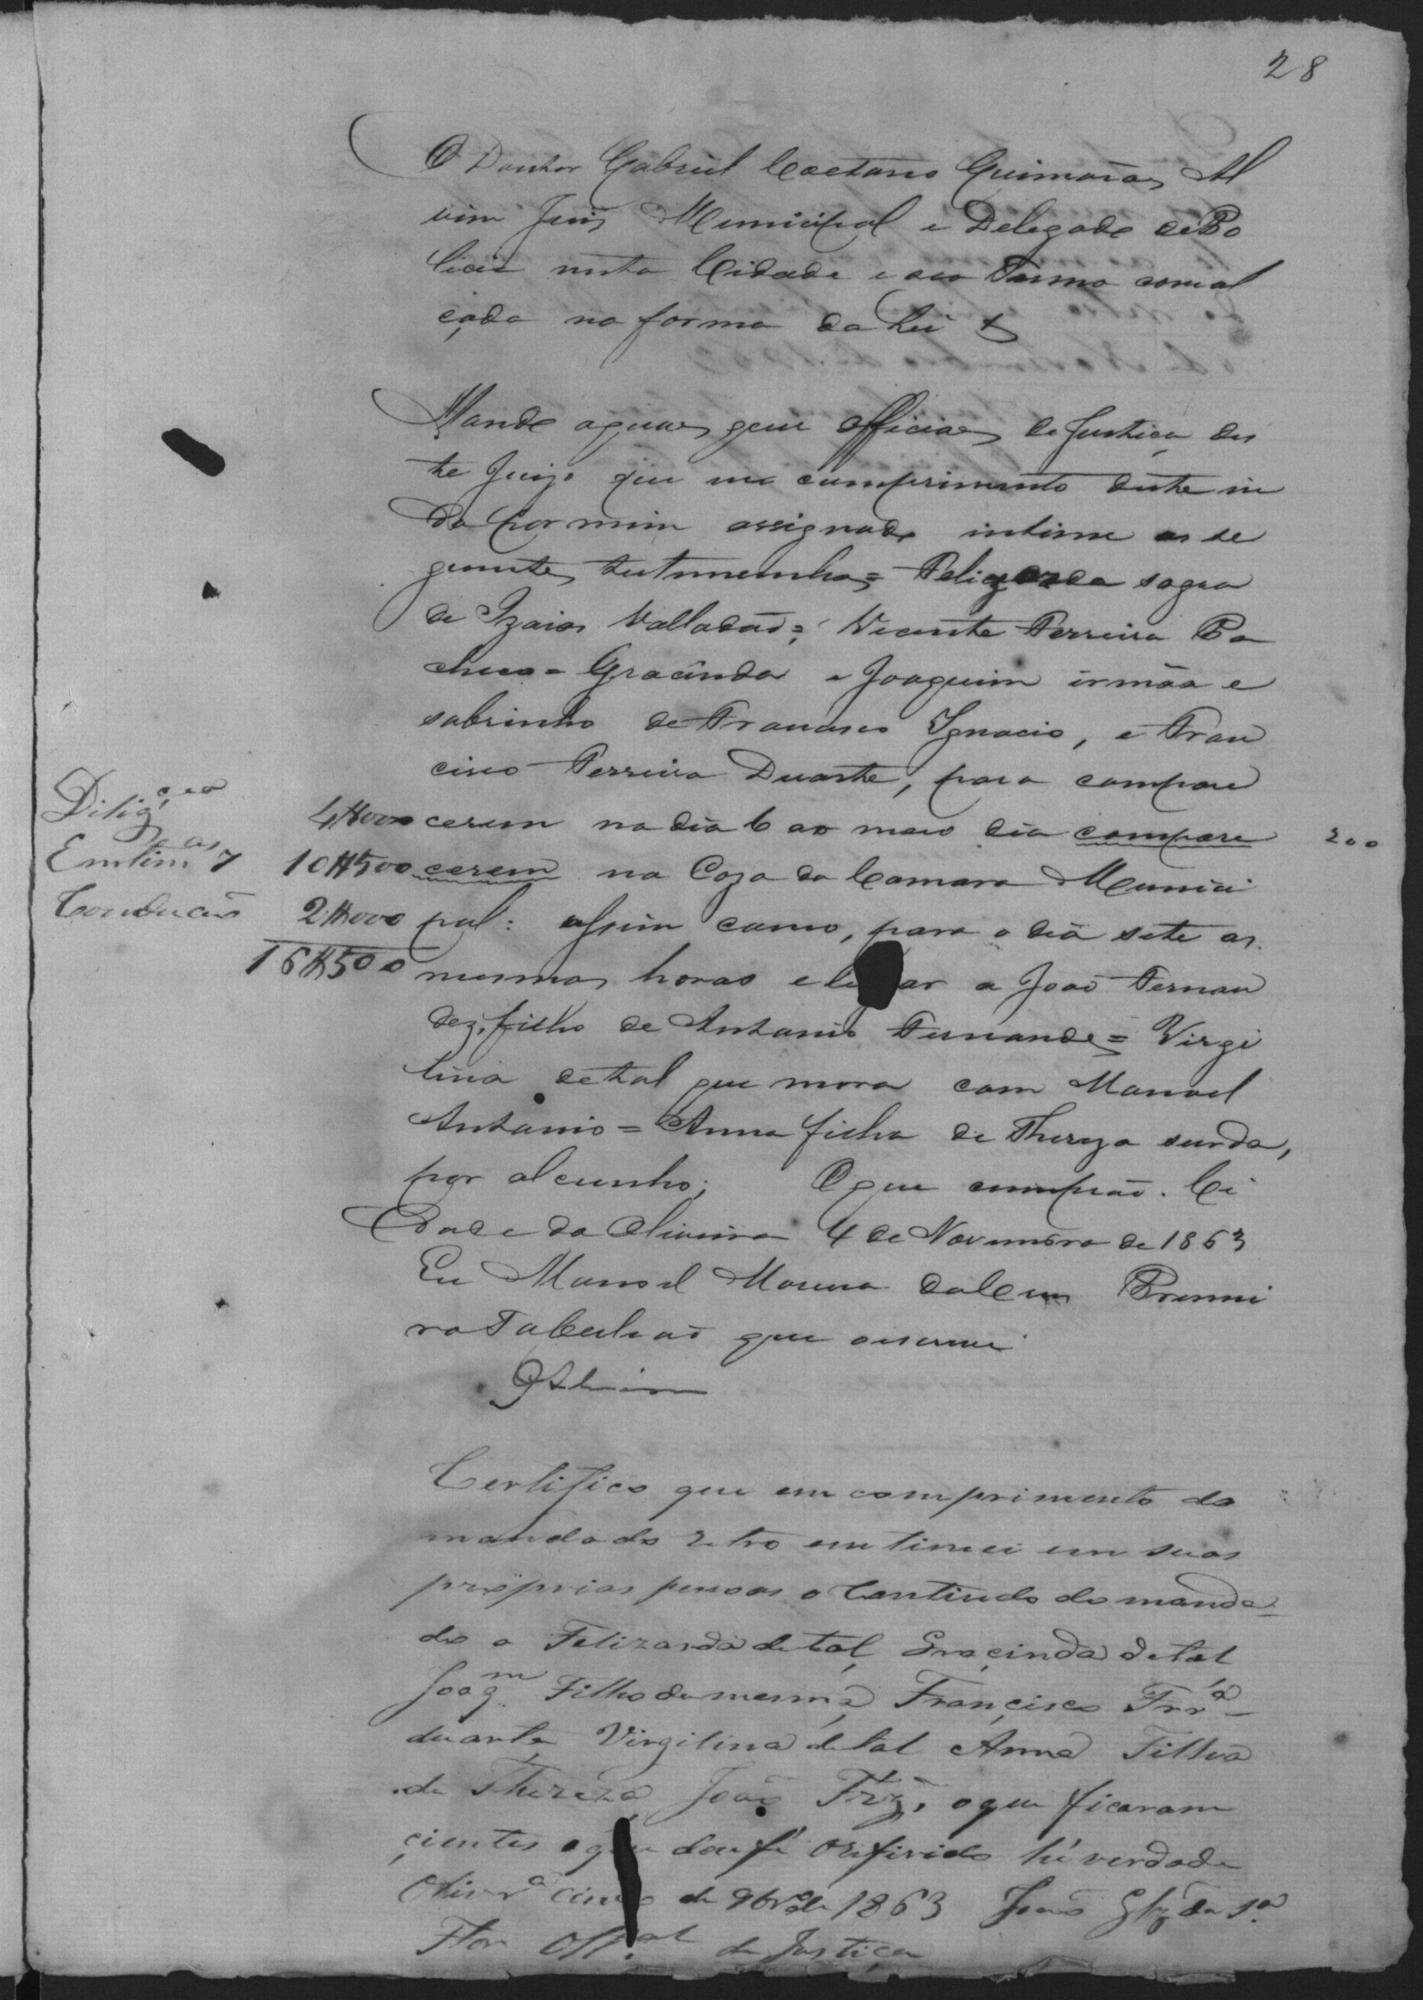 28
O Doutor Gabriel Caetano Guimarães Al
vim Juis Municipal e Delegado de Po
licia nesta Cidade e seo Termo com al
çada na forma da Lei &
Mando aquaes quer Officiaes de Justiça des
te Juizo que em comprimento deste in
do por mim assignado intime as se
guintes testimunhas = Felizarda sogra
de Izaias Valladaõ =; Vicente Ferreira Pa
checo = Gracinda e Joaquim irmãa e
sobrinho de Francisco Ignacio, e Fran
cisco Ferreira Duarte, para compare
cerem no dia 6 ao meio dia compare
cerem na Caza da Camara Munici
pal: assim como, para o dia sete as
mesmas horas e lugar a Joaõ Fernan
dez, filho de Antonio Fernandes = Virgi
lina de tal que mora com Manoel
Antonio = Anna filha de Thereza surda,
por alcunha; O que cumpraõ. Ci
dade da Oliveira 4 de Novembro de 1863
Eu Manoel Primei
ro Tabaliaõ que escrevi
GAlvim
Diligçao
Emtimas 7
Conducaõ
4#000
10#500
2#000
16#500
200
Certifico que em comprimento do
mandado retro emtimei em suas
proprias pesoas o Contiudo do manda
do a Felizarda de tal, Graçinda de tal
Joaqm Filho da mesma, Françisco Frra
duarte Virgilina de tal Anna Filha
de Thereza João Frz, o que ficaram
çientes o que dou fé o refirido hé verdade
Olivra cinco de 9bro de 1863 João Glz da Sa
Flor Offal de Justiça